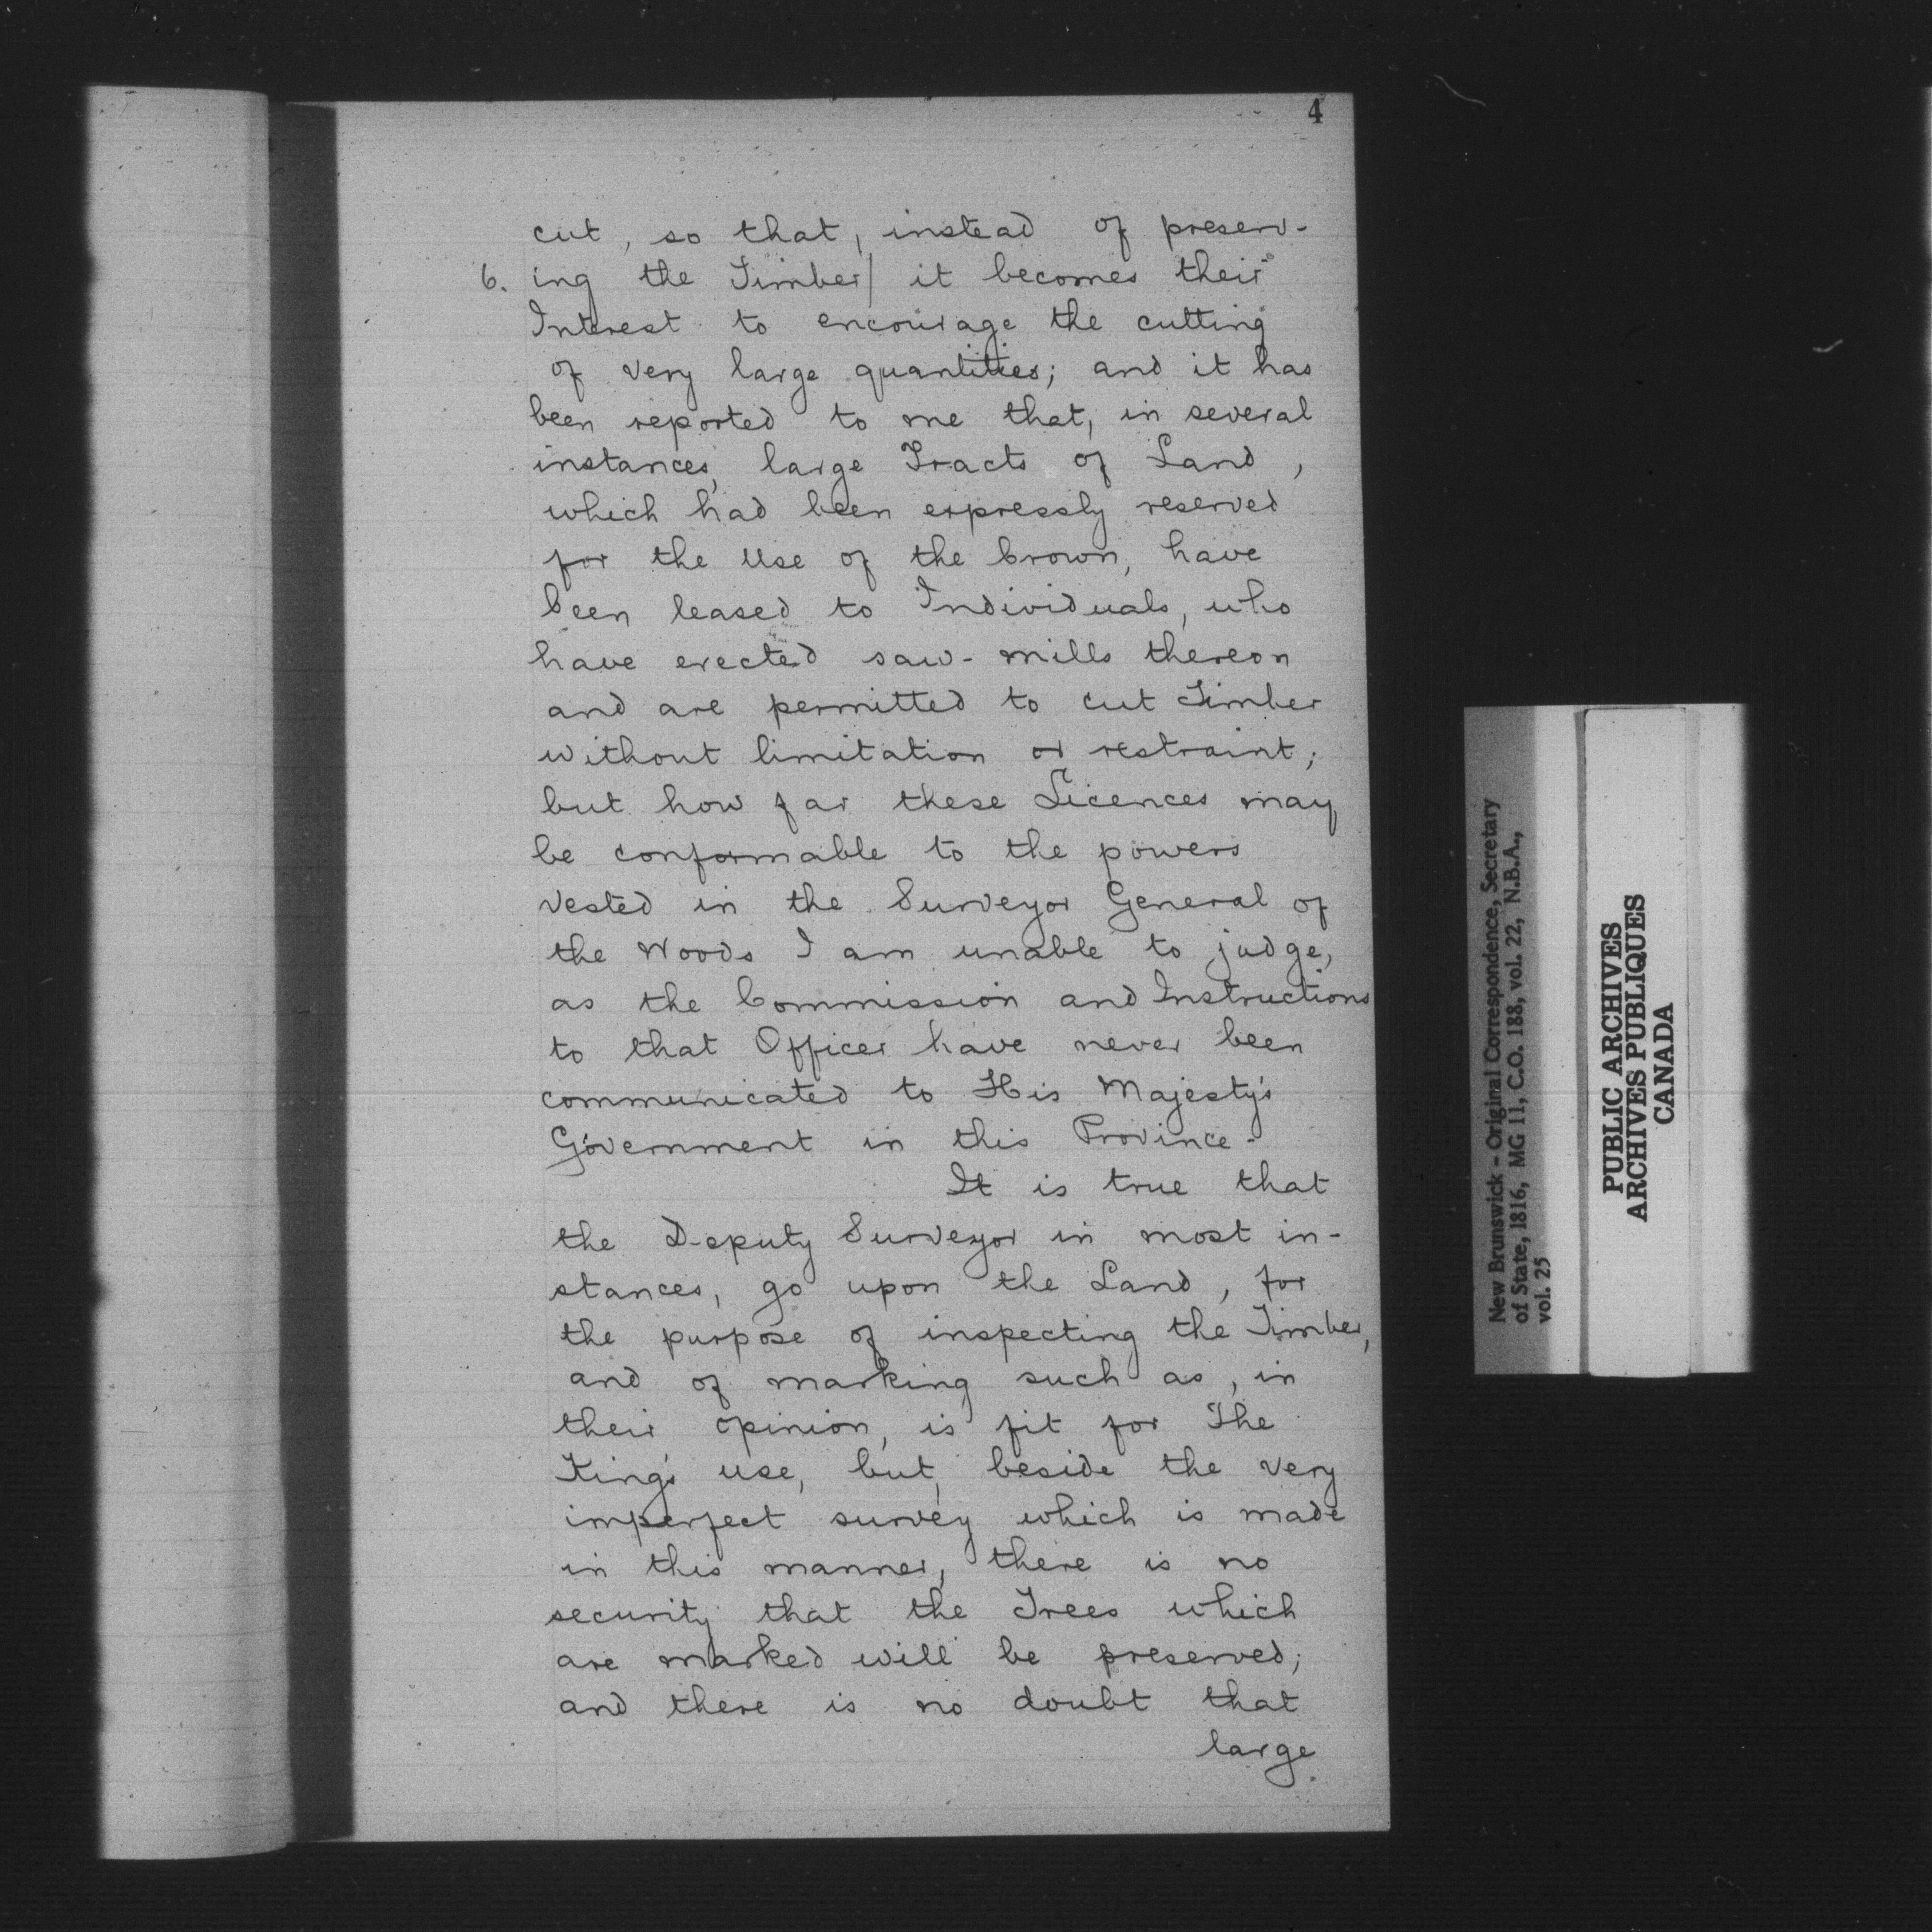 4
cut, so that, instead of preserv-
6. ing the Timber/ it becomes their
Interest to encourage the cutting
of very large quantities; and it has
been reported to me that, in several
instances, large Tracts of Land,
which had been expressly reserved
for the Use of the Crown, have
been leased to Individuals, who
have erected saw-mills thereon
and are permitted to cut Timber
without limitation or restraint;
but how far these Licences may
be conformable to the powers
vested in the Surveyor General of
the Woods I am unable to judge,
as the Commission and Instructions
to that Officer have never been
communicated to His Majesty's
Government in this Province-
It is true that
the Deputy Surveyor in most in-
stances, go upon the Land, for
the purpose of inspecting the Timber,
and of marking such as, in
their opinion, is fit for The
King's use, but, beside the very
imperfect survey which is made
in this manner, there is no
security that the Trees which
are marked will be preserved;
and there is no doubt that
large
New Brunswick - Original Correspondence, Secretary
of State, 1816, MG 11, C.O. 188, vol. 22, N.B.A.,
vol. 25
PUBLIC ARCHIVES
ARCHIVES PUBLIQUES
CANADA